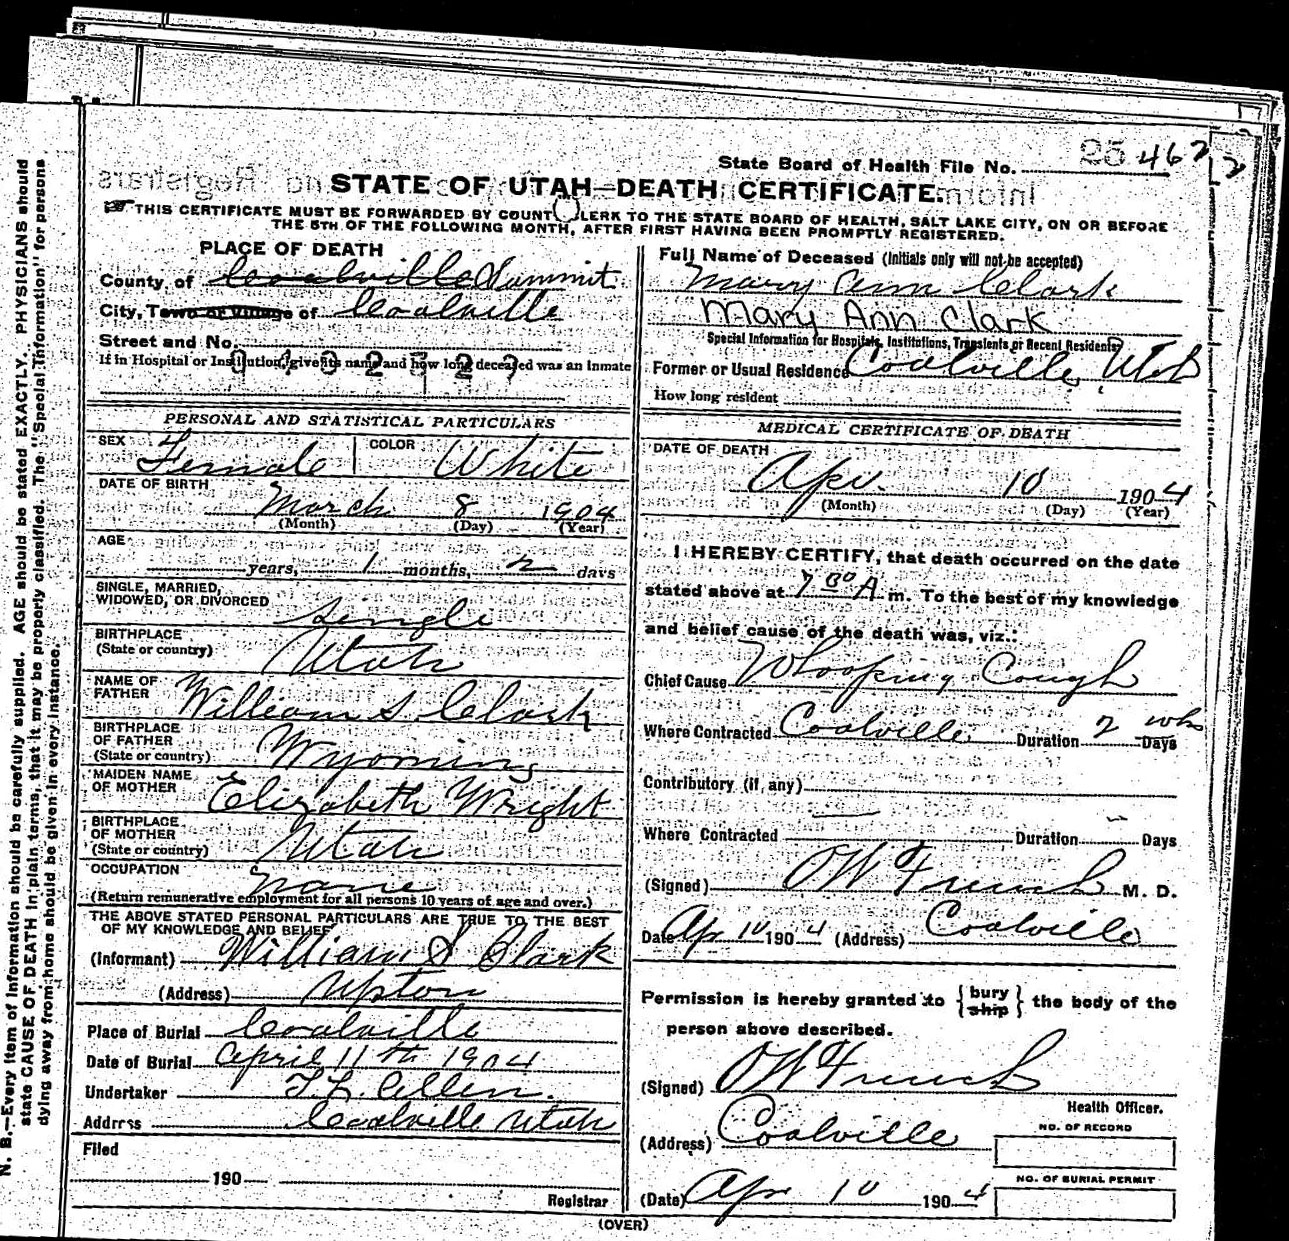 State Board of Health File No. 25 462
STATE OF UTAH—DEATH CERTIFICATE.
THIS CERTIFICATE MUST BE FORWARDED BY COUNT LERK TO THE STATE BOARD OF HEALTH, SALT LAKE CITY, ON OR BEFORE
THE 5TH OF THE FOLLOWING MONTH, AFTER FIRST HAVING BEEN PROMPTLY REGISTERED.
PLACE OF DEATH
County of Coalville Summit
City, Town or Village of Coalville
Street and No.
If in Hospital or Institution, give its name and how long deceased was an inmate
PERSONAL AND STATISTICAL PARTICULARS
SEX Female COLOR White
DATE OF BIRTH March 8 1904
(Month) (Day) (Year)
AGE
years, 1 months, 2 days
SINGLE, MARRIED,
WIDOWED, OR DIVORCED Single
BIRTHPLACE
(State or country) Utah
NAME OF
FATHER William S. Clark
BIRTHPLACE
OF FATHER
(State or country) Wyoming
MAIDEN NAME
OF MOTHER Elizabeth Wright
BIRTHPLACE
OF MOTHER
(State or country) Utah
OCCUPATION None
(Return remunerative employment for all persons 10 years of age and over.)
THE ABOVE STATED PERSONAL PARTICULARS ARE TRUE TO THE BEST
OF MY KNOWLEDGE AND BELIEF
(Informant) William S Clark
(Address) Upton
Place of Burial Coalville
Date of Burial April 11th 1904
Undertaker Allen.
Address Coalville Utah
Filed
190
Registrar
Full Name of Deceased (Initials only will not be accepted)
Mary Ann Clark
Mary Ann Clark
Special Information for Hospitals, Institutions, Transients or Recent Residents
Former or Usual Residence Coalville, Utah
How long resident
MEDICAL CERTIFICATE OF DEATH
DATE OF DEATH
Apr. 10 1904
(Month) (Day) (Year)
I HEREBY CERTIFY, that death occurred on the date
stated above at 7 00 A m. To the best of my knowledge
and belief cause of the death was, viz.:
Chief Cause Whooping Cough
Where Contracted Coalville Duration 2 wks Days
Contributory (if any)
Where Contracted — Duration — Days
(Signed) OW French M. D.
Date Apr 10 1904 (Address) Coalville
Permission is hereby granted to {bury ship} the body of the
person above described.
(Signed) OW French
Health Officer.
(Address) Coalville
NO. OF RECORD
NO. OF BURIAL PERMIT
(Date) Apr 10 1904
(OVER)
N. B.—Every item of information should be carefully supplied. AGE should be stated EXACTLY. PHYSICIANS should
state CAUSE OF DEATH in plain terms, that it may be properly classified. The "Special Information" for persons
dying away from home should be given in every instance.